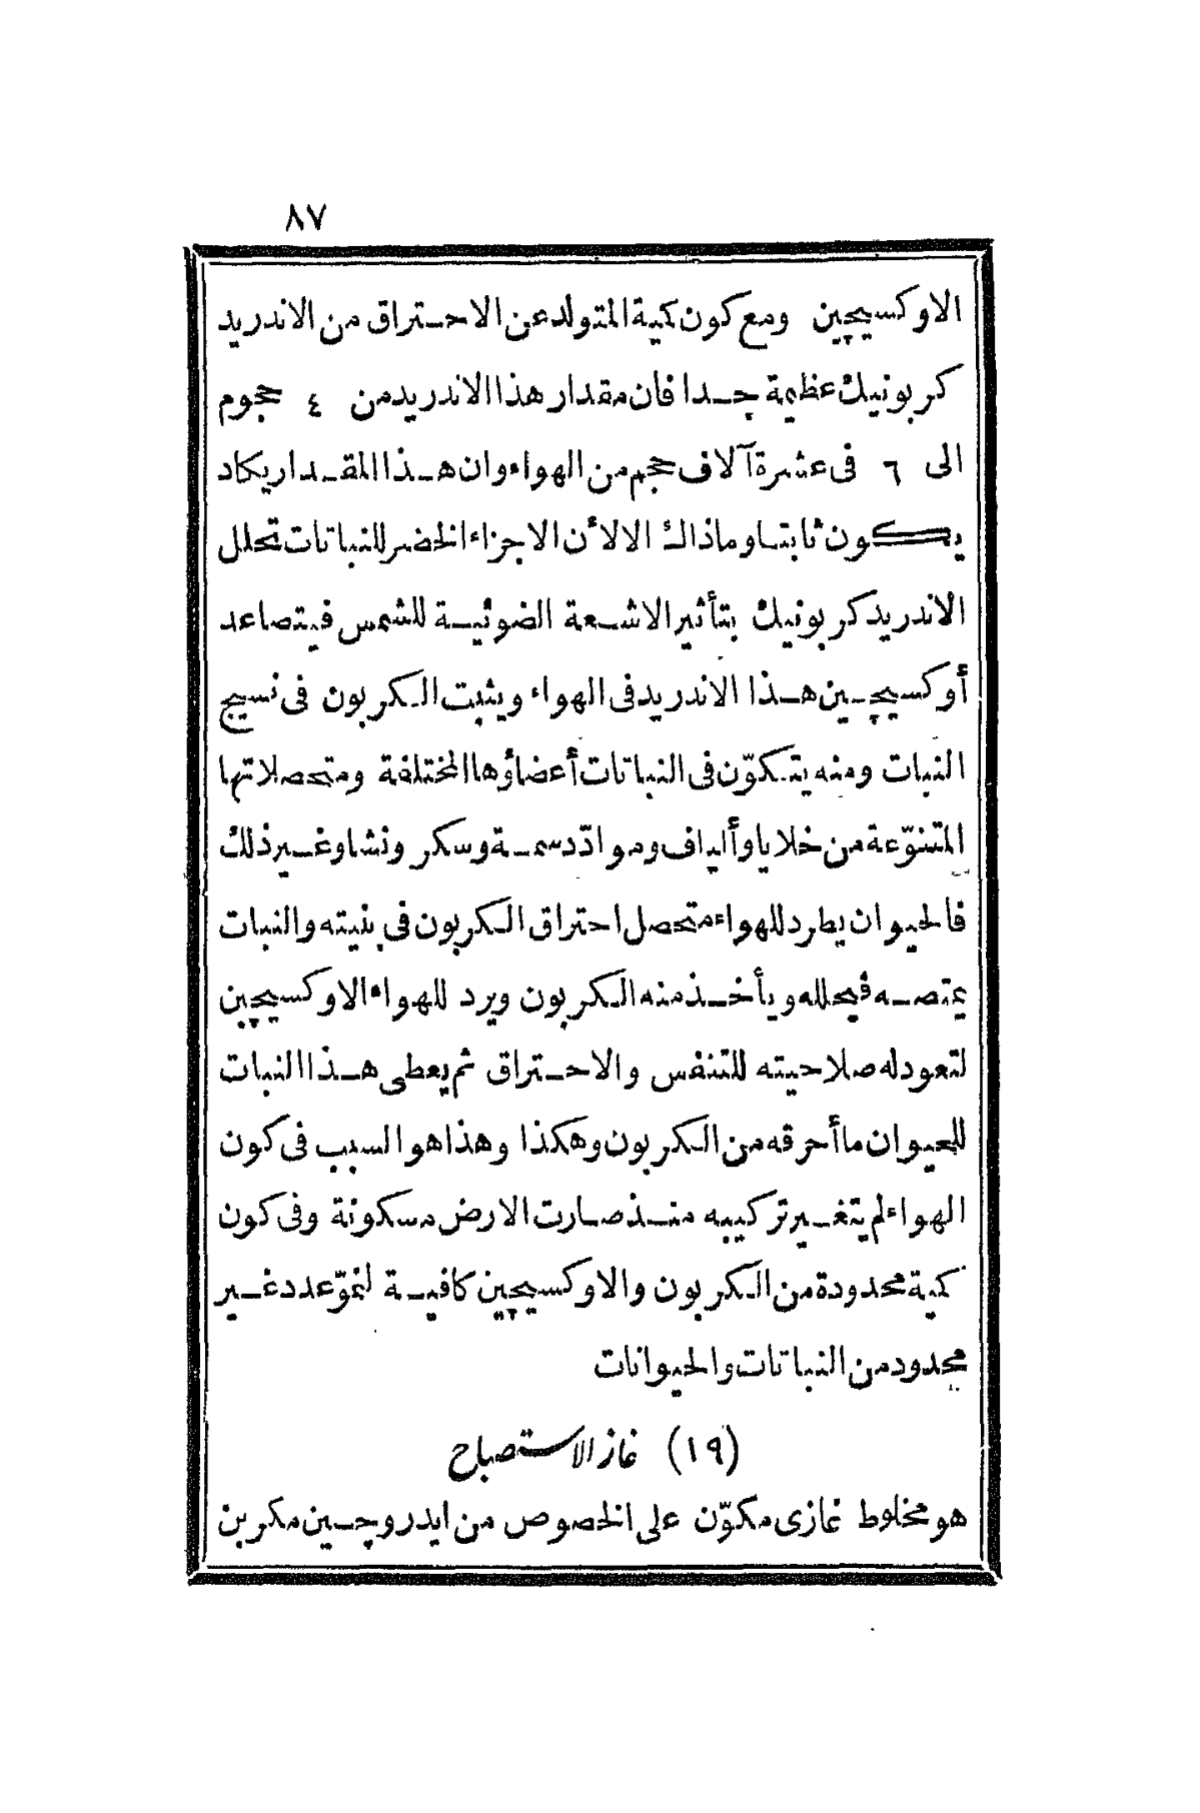 ٨٧
الاوكسيچين ومع كون كمية المتولد عن الاحتراق من الاندريد
كربونيك عظيمة جدا فان مقدار هذا الاندريد من ٤ حجوم
الى ٦ فى عشرة آلاف حجم من الهواء وان هذا المقدار يكاد
يكون ثابتا وما ذاك الا لأن الاجزاء الخضر للنباتات تحلل
الاندريد كربونيك بتأثير الاشعة الضوئية للشمس فيتصاعد
أوكسيچين هذا الاندريد فى الهواء ويثبت الكربون فى نسيج
النبات ومنه يتكوّن فى النباتات أعضاؤها المختلفة ومتحصلاتها
المتنوّعة من خلايا وألياف وموادّ دسمة وسكر ونشا وغير ذلك
فالحيوان يطرد للهواء متحصل احتراق الكربون فى بنيته والنبات
يمتصه فيحلله ويأخذ منه الكربون ويرد للهواء الاوكسيچين
لتعود له صلاحيته للتنفس والاحتراق ثم يعطى هذا النبات
للحيوان ما أحرقه من الكربون وهكذا وهذا هو السبب فى كون
الهواء لم يتغير تركيبه منذ صارت الارض مسكونة وفى كون
كمية محدودة من الكربون والاوكسيچين كافية لنموّ عدد غير
محدود من النباتات والحيوانات
(١٩) غاز الاستصباح
هو مخلوط غازى مكوّن على الخصوص من ايدروچين مكربن